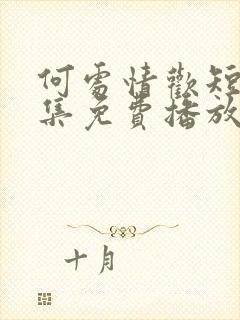 何處情歡短
集免費播放
十月